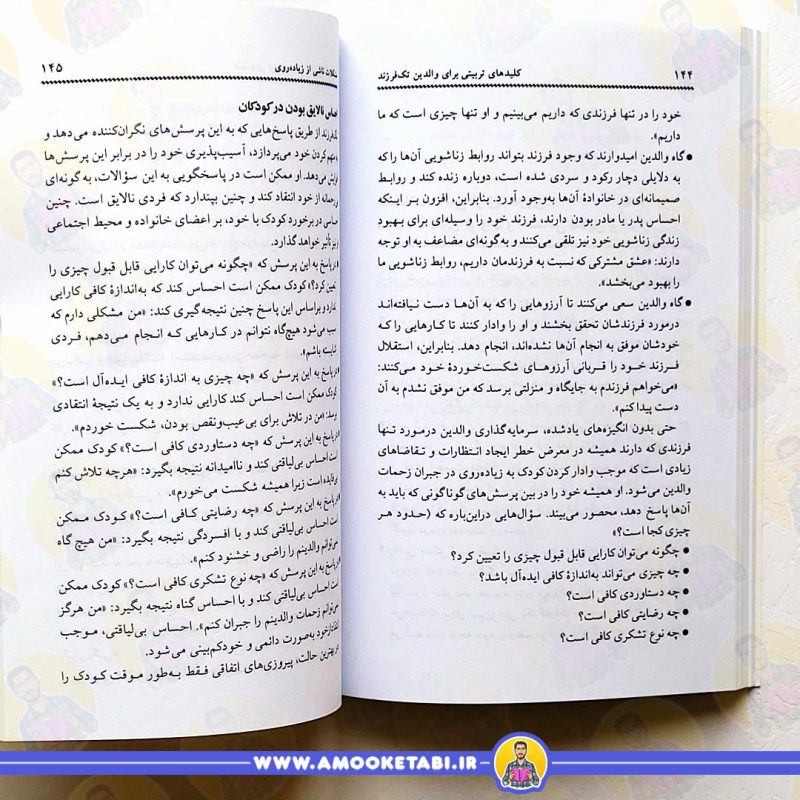 ۱۴۴
کلیدهای تربیتی برای والدین تک‌فرزند
خود را در تنها فرزندی که داریم می‌بینیم و او تنها چیزی است که ما
داریم».
● گاه والدین امیدوارند که وجود فرزند بتواند روابط زناشویی آن‌ها را که
به دلایلی دچار رکود و سردی شده است، دوباره زنده کند و روابط
صمیمانه‌ای در خانوادهٔ آن‌ها به‌وجود آورد. بنابراین، افزون بر اینکه
احساس پدر یا مادر بودن دارند، فرزند خود را وسیله‌ای برای بهبودِ
زندگی زناشویی خود نیز تلقی می‌کنند و به‌گونه‌ای مضاعف به او توجه
دارند: «عشق مشترکی که نسبت به فرزندمان داریم، روابط زناشویی ما
را بهبود می‌بخشد».
● گاه والدین سعی می‌کنند تا آرزوهایی که به آن‌ها دست نیافته‌اند
درمورد فرزندشان تحقق بخشند و او را وادار کنند تا کارهایی را که
خودشان موفق به انجام آن‌ها نشده‌اند، انجام دهد. بنابراین، استقلال
فرزند خود را قربانی آرزوهای شکست‌خوردهٔ خود می‌کنند:
«می‌خواهم فرزندم به جایگاه و منزلتی برسد که من موفق نشدم به آن
دست پیدا کنم».
حتی بدون انگیزه‌های یادشده، سرمایه‌گذاری والدین درمورد تنها
فرزندی که دارند همیشه در معرض خطر ایجاد انتظارات و تقاضاهای
زیادی است که موجب وادار کردن کودک به زیاده‌روی در جبران زحمات
والدین می‌شود. او همیشه خود را در بین پرسش‌های گوناگونی که باید به
آن‌ها پاسخ دهد، محصور می‌بیند. سؤال‌هایی دراین‌باره که (حدود هر
چیزی کجا است؟»
● چگونه می‌توان کارایی قابل قبول چیزی را تعیین کرد؟
● چه چیزی می‌تواند به‌اندازهٔ کافی ایده‌آل باشد؟
● چه دستاوردی کافی است؟
● چه رضایتی کافی است؟
● چه نوع تشکری کافی است؟
ناشی از زیاده‌روی
۱۴۵
نالایق بودن در کودکان
از طریق پاسخ‌هایی که به این پرسش‌های نگران‌کننده می‌دهد و
کردن خود می‌پردازد، آسیب‌پذیری خود را در برابر این پرسش‌ها
می‌دهد. او ممکن است در پاسخگویی به این سؤالات، به‌گونه‌ای
از خود انتقاد کند و چنین بپندارد که فردی نالایق است. چنین
در برخورد کودک با خود، بر اعضای خانواده و محیط اجتماعی
تأثیر خواهد گذارد.
پاسخ به این پرسش که «چگونه می‌توان کارایی قابل قبول چیزی را
کرد؟» کودک ممکن است احساس کند که به‌اندازهٔ کافی کارایی
و براساس این پاسخ چنین نتیجه‌گیری کند: «من مشکلی دارم که
می‌شود هیچ‌گاه نتوانم در کارهایی که انجام می‌دهم، فردی
باشم».
پاسخ به این پرسش که «چه چیزی به اندازهٔ کافی ایده‌آل است؟»
کودک ممکن است احساس کند کارایی ندارد و به یک نتیجهٔ انتقادی
«من در تلاش برای بی‌عیب‌ونقص بودن، شکست خوردم».
پاسخ به این پرسش که «چه دستاوردی کافی است؟» کودک ممکن
است احساس بی‌لیاقتی کند و ناامیدانه نتیجه بگیرد: «هرچه تلاش کنم
بی‌فایده است زیرا همیشه شکست می‌خورم».
پاسخ به این پرسش که «چه رضایتی کافی است؟» کودک ممکن
است احساس بی‌لیاقتی کند و با افسردگی نتیجه بگیرد: «من هیچ گاه
نمی‌توانم والدینم را راضی و خشنود کنم».
پاسخ به این پرسش که «چه نوع تشکری کافی است؟» کودک ممکن
است احساس بی‌لیاقتی کند و با احساس گناه نتیجه بگیرد: «من هرگز
نمی‌توانم زحمات والدینم را جبران کنم». احساس بی‌لیاقتی، موجب
از خود به‌صورت دائمی و خودکم‌بینی می‌شود.
در بهترین حالت، پیروزی‌های اتفاقی فقط به‌طور موقت کودک را
WWW.AMOOKETABI.IR